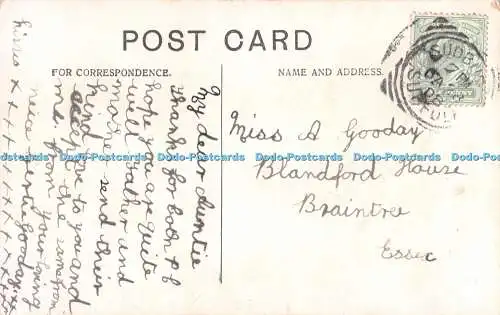 POST CARD
FOR CORRESPONDENCE.
NAME AND ADDRESS.
My dear Auntie
thanks for both p.f
hope you are quite
well Father and
mother send their
kind love to you and
accept the same from
me. from your loving
neice Gooday. xx
kisses x x x x x x x x x x x
Miss A Gooday
Blandford House
Braintree
Essex
SUDBURY
Dodo-Postcards Dodo-Postcards Dodo-Postcards Dodo-Postcards Dodo-Postcards Dodo-Postcards